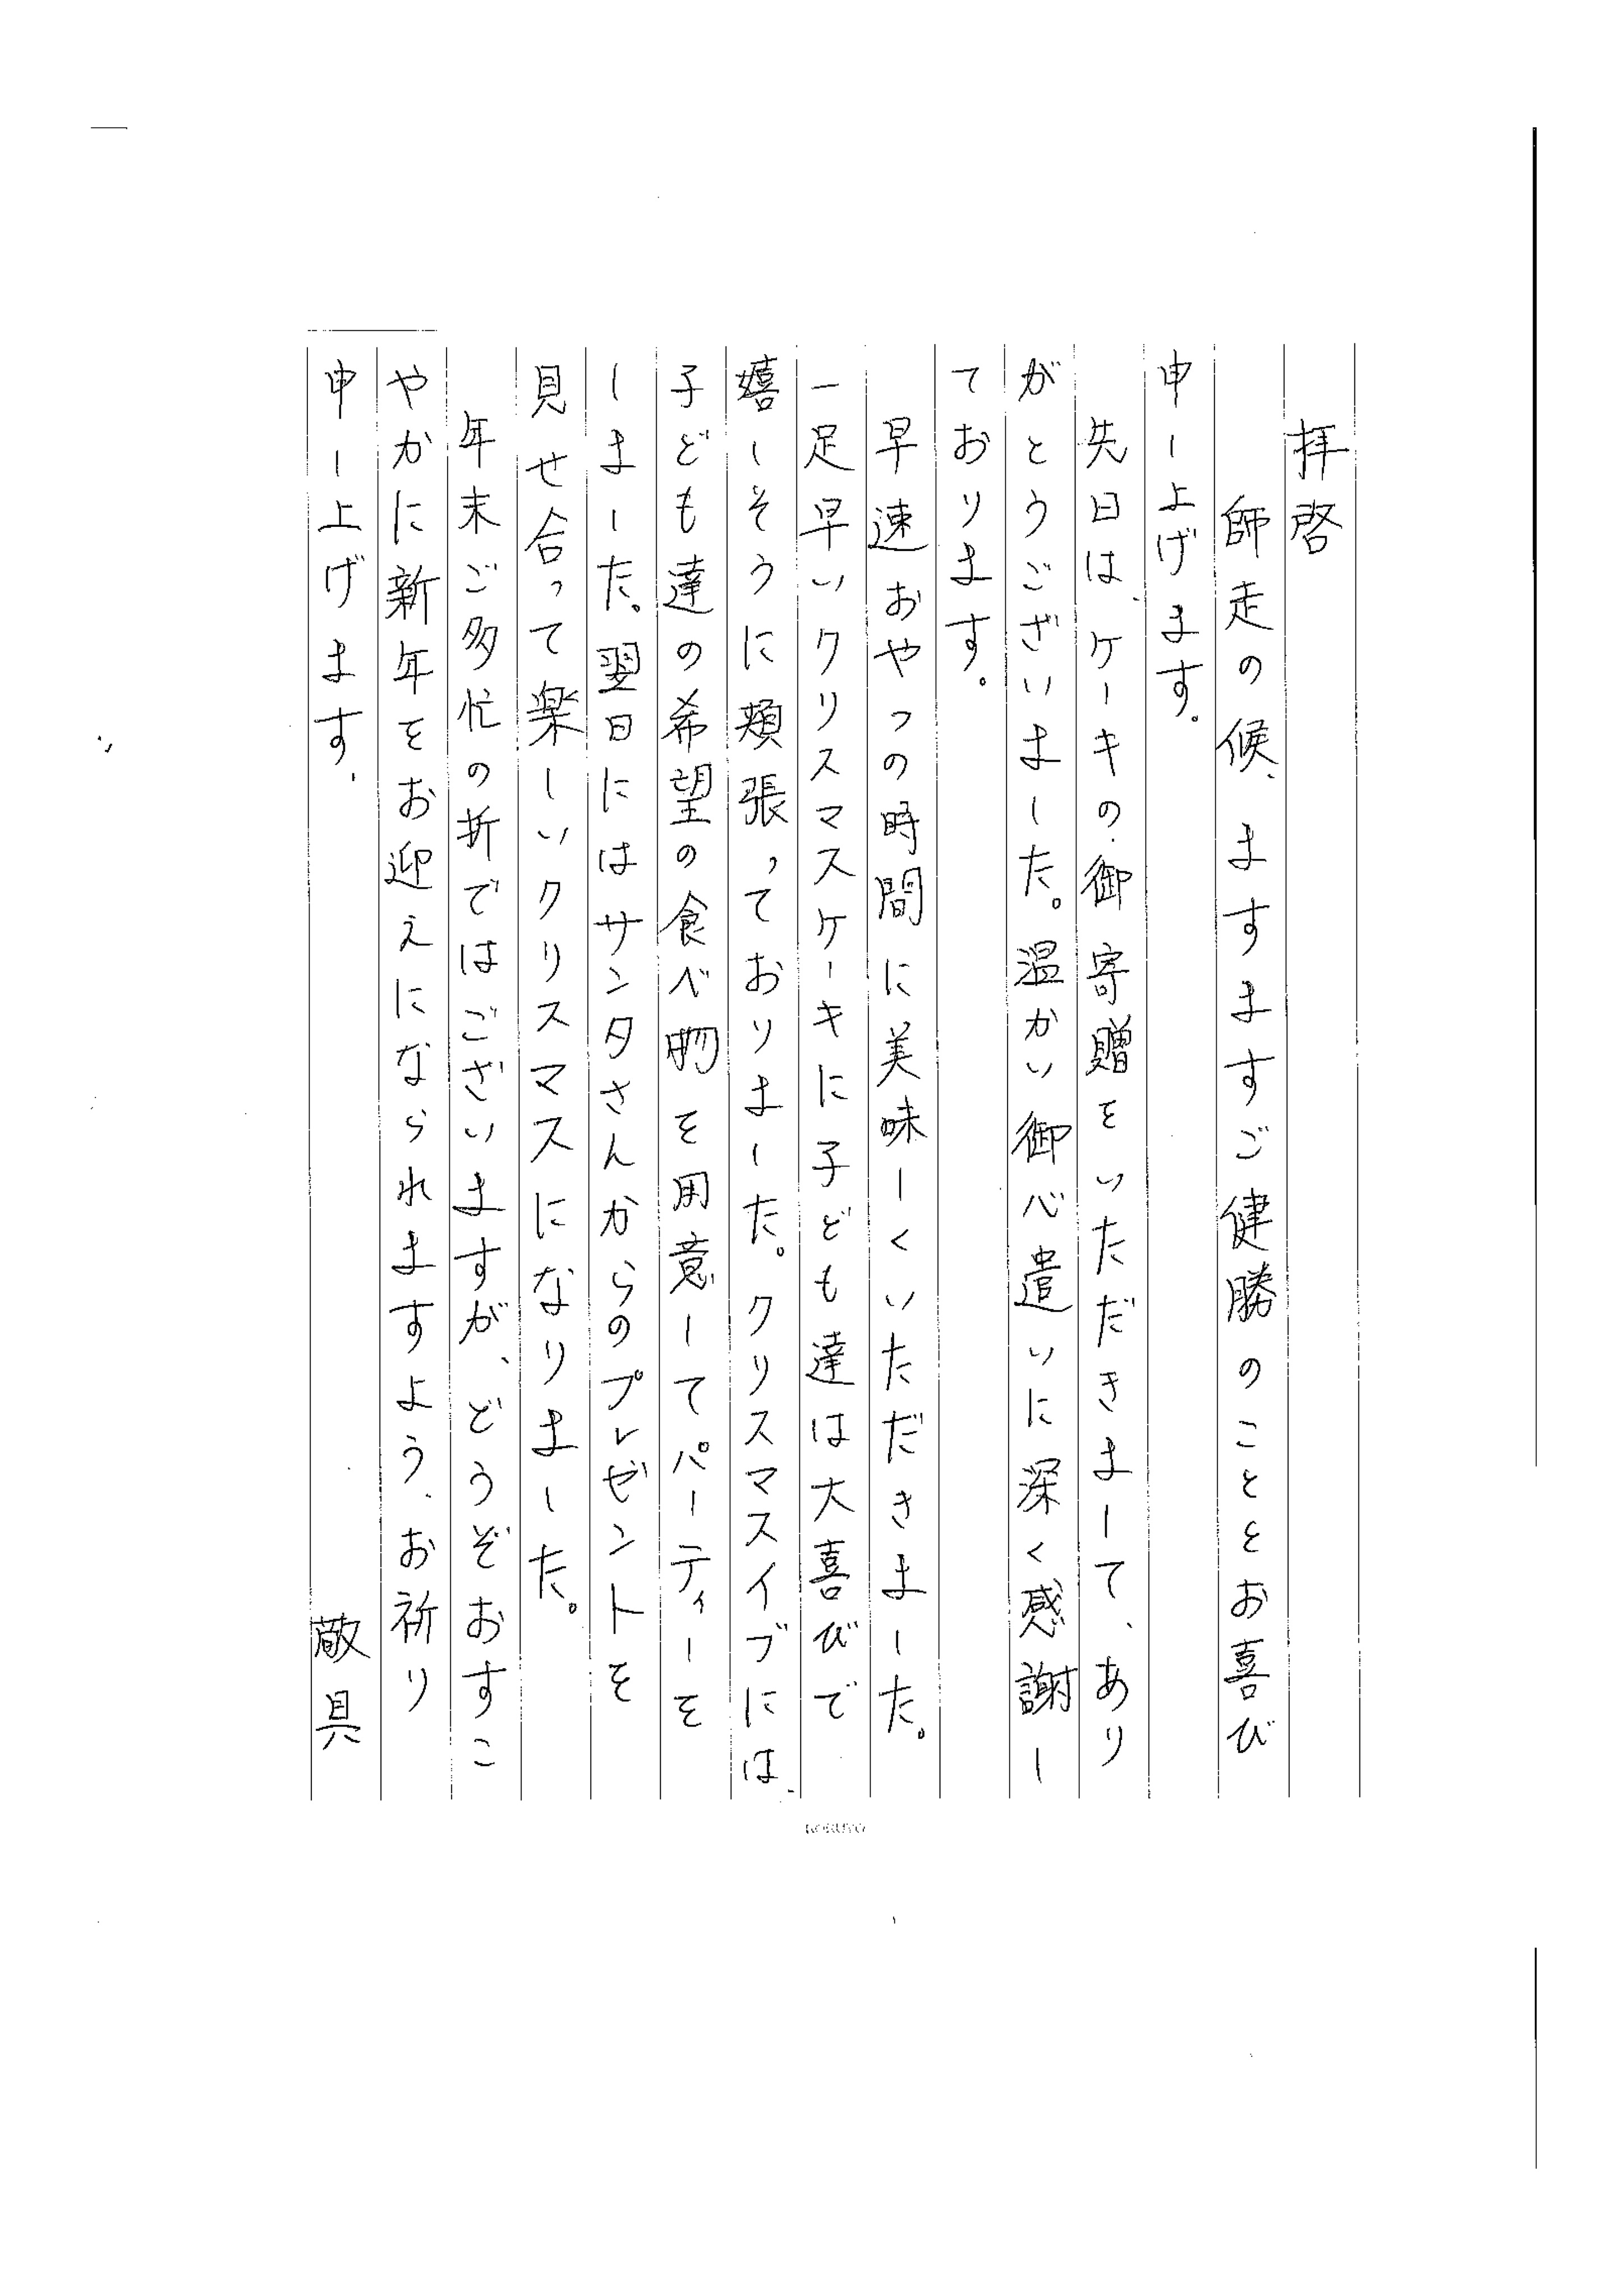 拝啓
師走の候、ますますご健勝のこととお喜び
申し上げます。
先日は、ケーキの御寄贈をいただきまして、あり
がとうございました。温かい御心遣いに深く感謝し
ております。
早速おやつの時間に美味しくいただきました。
一足早いクリスマスケーキに子ども達は大喜びで
嬉しそうに頬張っておりました。クリスマスイブには、
子ども達の希望の食べ物を用意してパーティーを
しました。翌日にはサンタさんからのプレゼントを
見せ合って楽しいクリスマスになりました。
年末ご多忙の折ではございますが、どうぞおすこ
やかに新年をお迎えになられますよう、お祈り
申し上げます。
敬具
KOKUYO